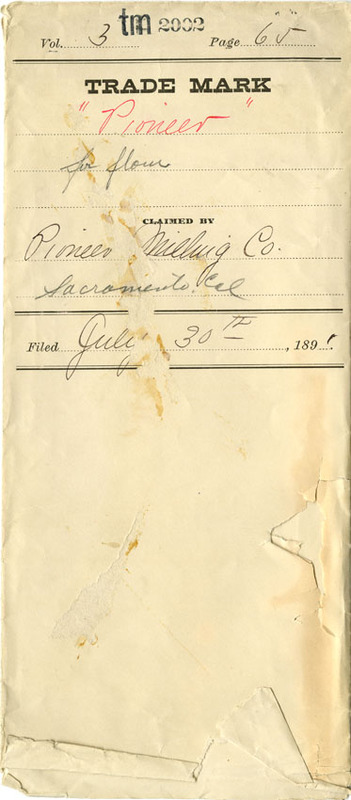 tm 2002
Vol. 3 Page 65
TRADE MARK
"Pioneer"
for flour
CLAIMED BY
Pioneer Milling Co.
Sacramento, Cal
Filed July 30TH, 1891